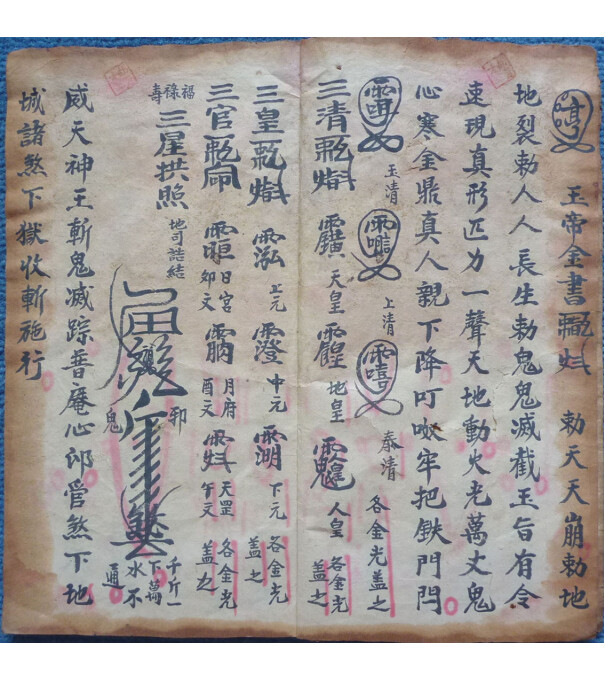 玉帝金書 勅天天崩勅地
地裂勅人人長生勅鬼鬼滅截王旨有令
速現真形匹力一聲天地動火光萬丈鬼
心寒金鼎真人親下降叮嗷牢把鉄門閂
玉清 上清 泰清 各金光盖之
三清 天皇 地皇 人皇 各金光盖之
三皇 上元 中元 下元 各金光盖之
三官 日宮卯文 月府酉文 天罡午文 各金光盖之
福祿壽三星拱照 地司誥結
鬼 卯 千斤一下萬水不通
威天神王斬鬼滅踪普庵心郎管煞下地
城諸煞下獄收斬施行